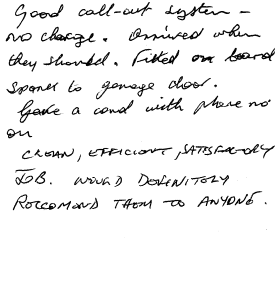 Good call-out system -
no charge. Arrived when
they should. Fitted on board
spanner to garage door.
Gave a card with phone no
on
CLEAN, EFFICIENT, SATISFACTORY
JOB. WOULD DEFINITELY
RECCOMOND THEM TO ANYONE.